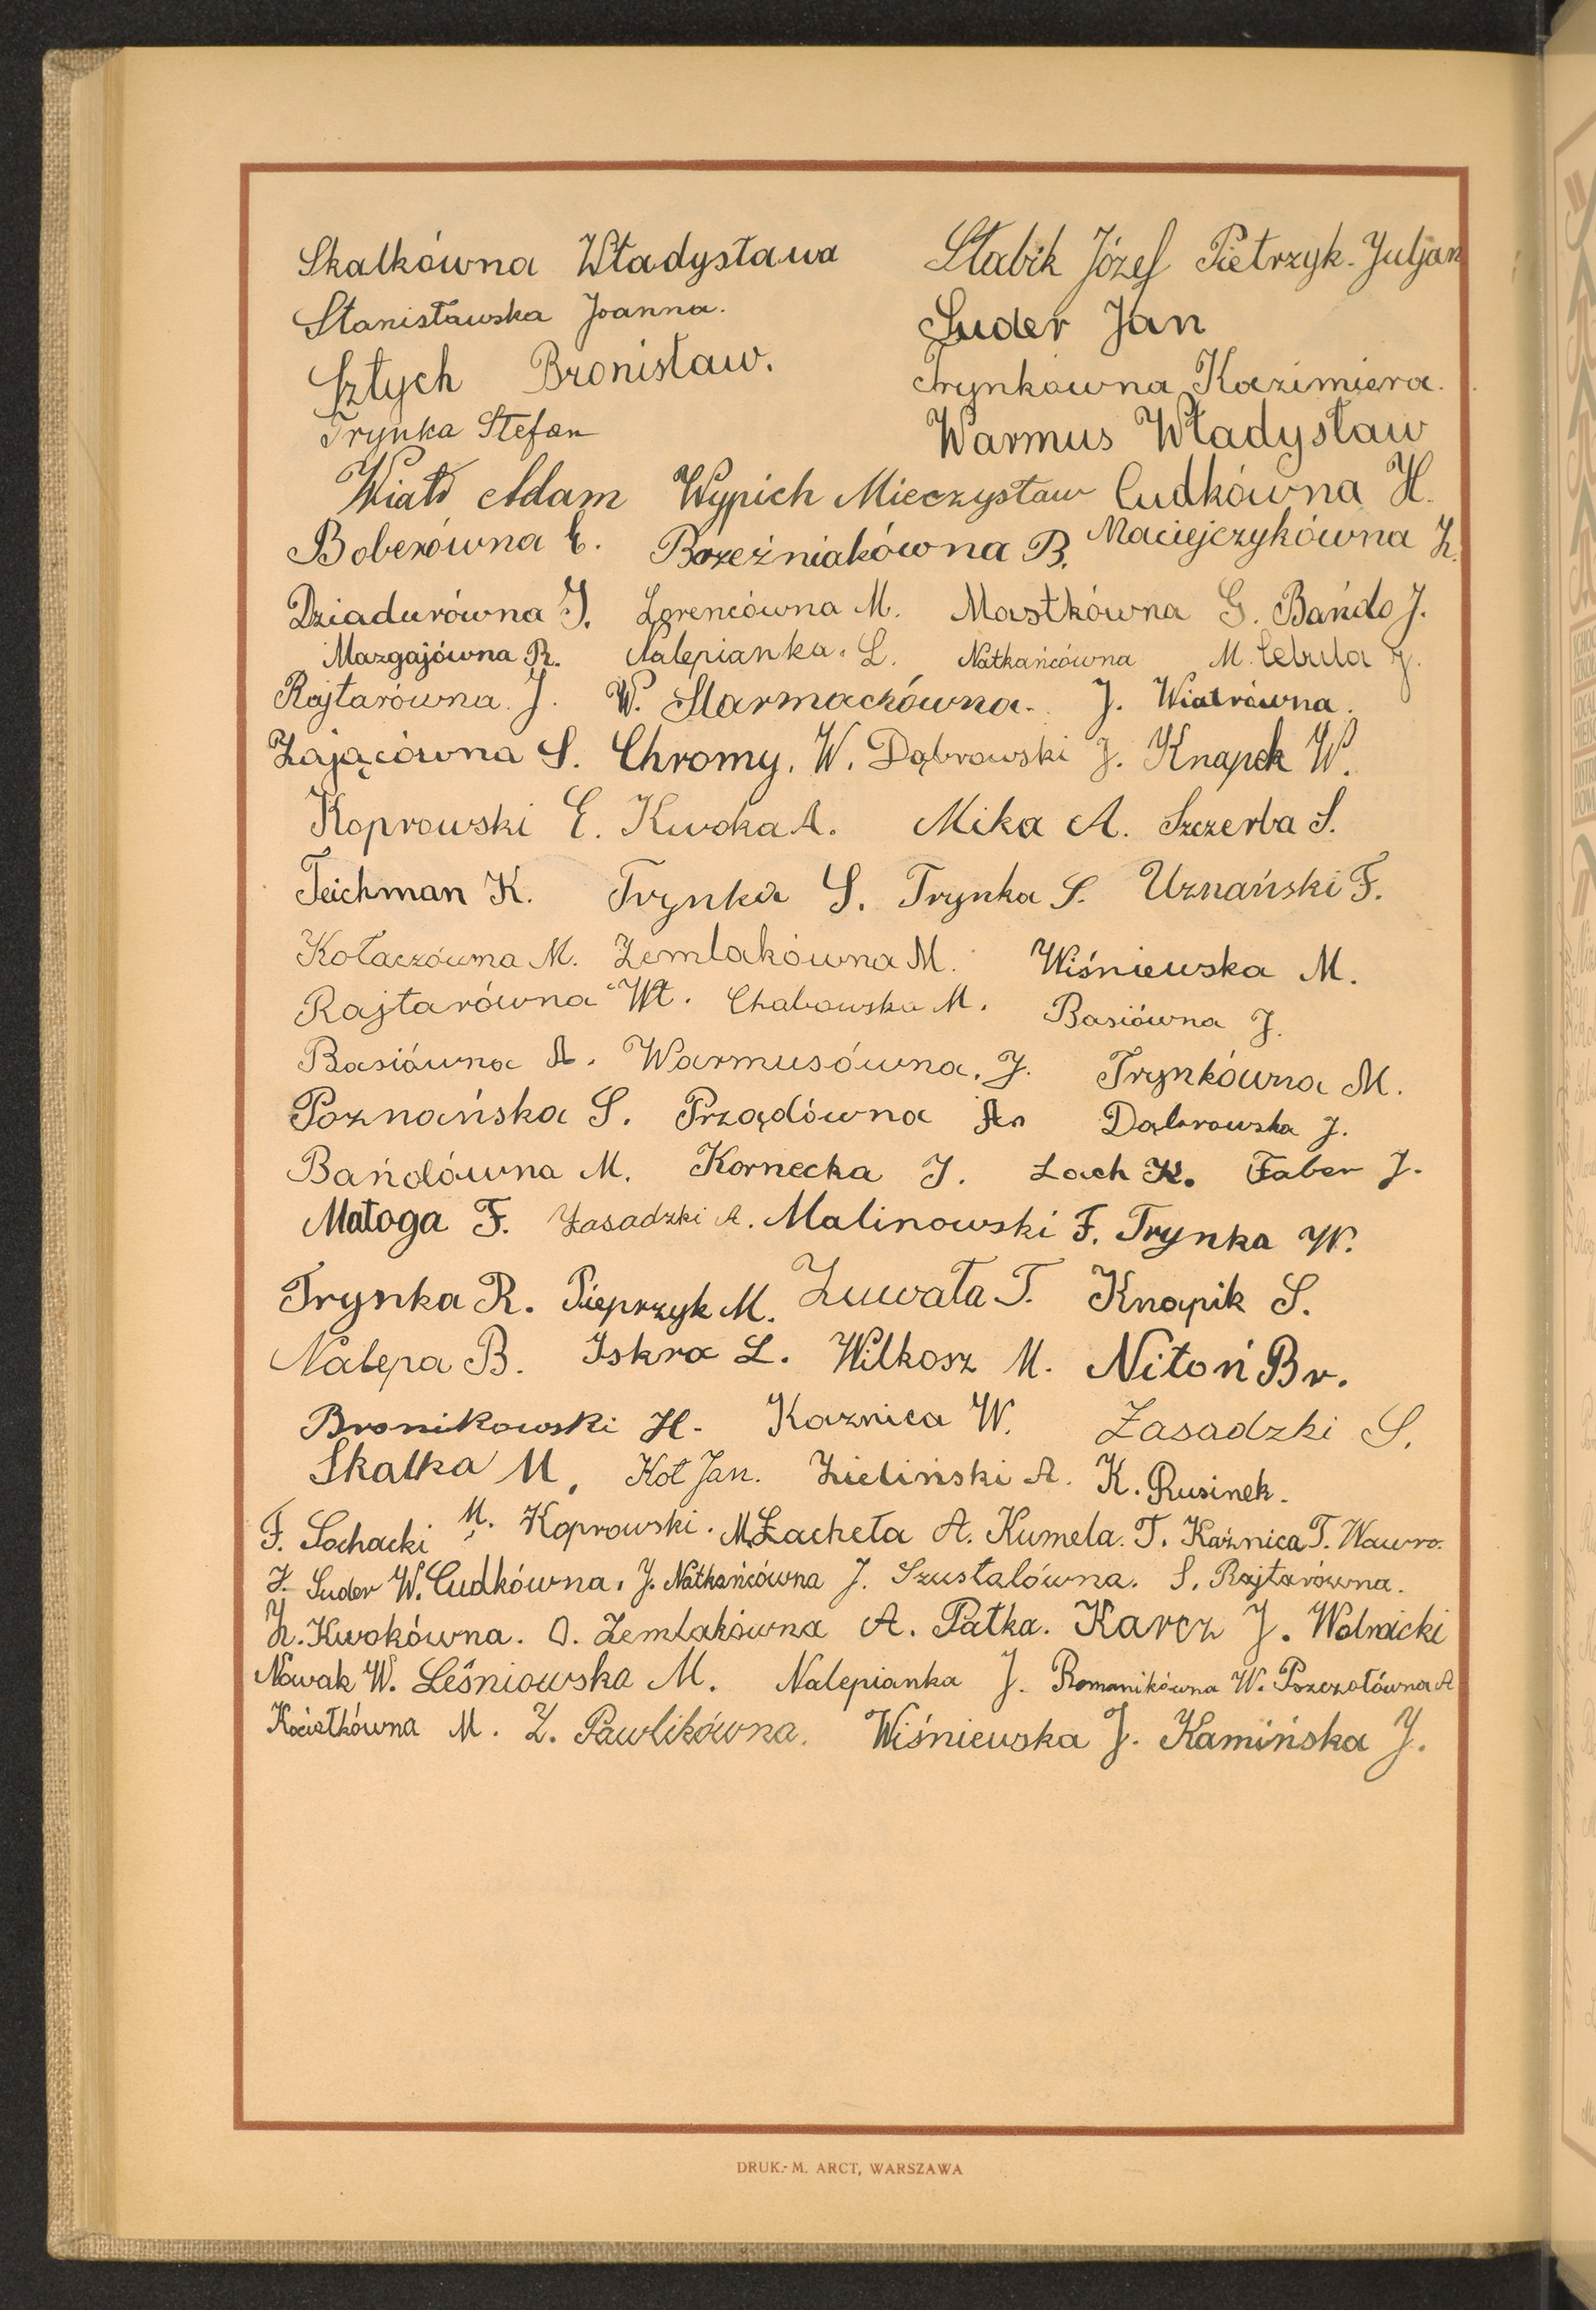 Skalkówna Władysława Słabik Józef Pietrzyk Juljan
Stanisławska Joanna. Suder Jan
Sztych Bronisław. Trynkówna Kazimiera.
Trynka Stefan Warmus Władysław
Wiatr Adam Wypich Mieczysław Cudkówna H.
Boberówna E. Brzeźniakówna B. Maciejczykówna Z.
Dziadurówna J. Lorencówna M. Mastkówna G. Bańdo J.
Mazgajówna R. Nalepianka L. Natkańcówna M. Cebula J.
Rajtarówna J. W. Starmachówna. J. Wiatrówna.
Zającówna S. Chromy. W. Dąbrowski J. Knapek W.
Koprowski E. Kwoka A. Mika A. Szczerba S.
Teichman K. Trynka S. Trynka S. Uznański F.
Kołaczówna M. Zemlakówna M. Wiśniewska M.
Rajtarówna Wł. Chabowska M. Basiówna J.
Basiówna A. Warmusówna. J. Trynkówna M.
Poznańska S. Przędówna A. Dąbrowska J.
Bańdówna M. Kornecka J. Lach K. Faber J.
Małoga F. Zasadzki A. Malinowski F. Trynka W.
Trynka R. Pieprzyk M. Zuwała T. Knapik S.
Nalepa B. Iskra L. Wilkosz M. Nitoń Br.
Bronikowski H. Kaznica W. Zasadzki S.
Skałka M. Kot Jan. Zieliński A. K. Rusinek.
F. Sochacki M. Koprowski. M. Zachęta A. Kumela. T. Kaźnica T. Wawro.
J. Suder W. Cudkówna. J. Natkańcówna J. Szustalówna. S. Rajtarówna.
Z. Kwokówna. O. Zemlakówna A. Pałka. Karcz J. Wolnicki
Nowak W. Leśniowska M. Nalepianka J. Romanikówna W. Pszczołówna A
Kościołkówna M. Z. Pawlikówna. Wiśniewska J. Kamińska J.
DRUK.- M. ARCT, WARSZAWA